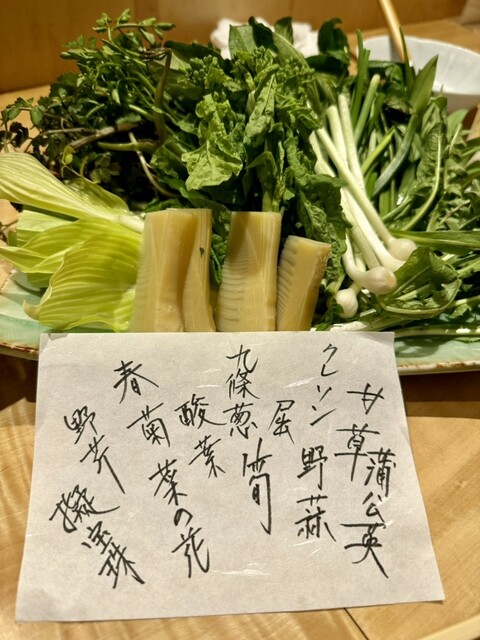 甘草
蒲公英
クレソン
野蒜
屈
筍
九條葱
酸葉
菜の花
春菊
野芹
擬宝珠